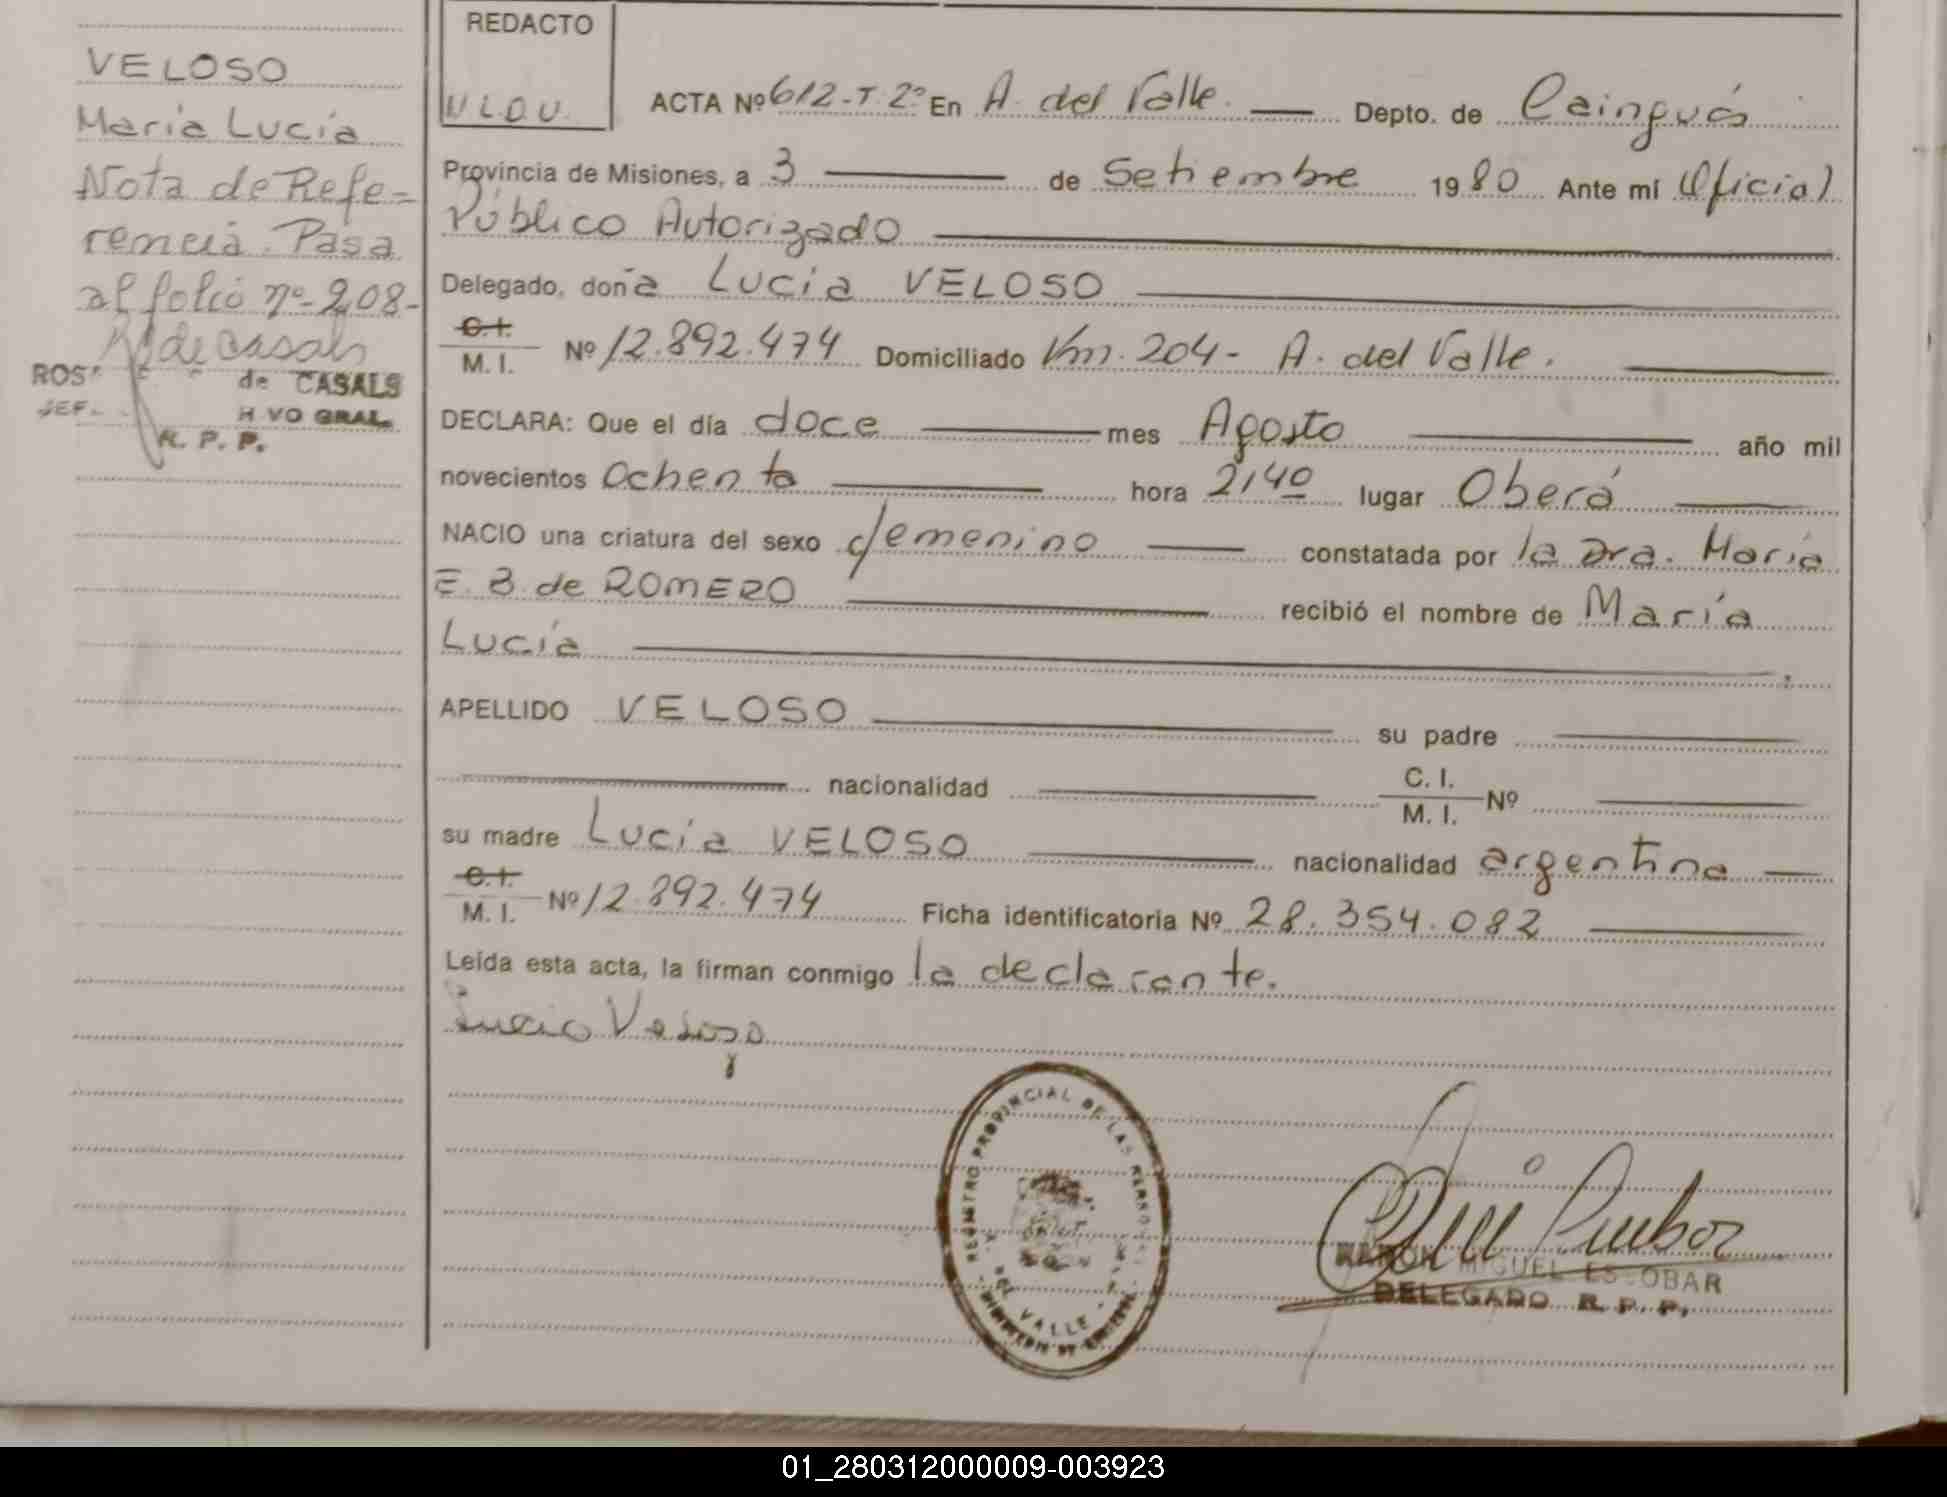 VELOSO
María Lucía
Nota de Refe=
rencia. Pasa
al folio nº 208-
de CASALS
H VO GRAL.
R. P. P.
REDACTO
ACTA Nº 612-T.2º En A. del Valle. Depto. de Cainguás
Provincia de Misiones, a 3 de Setiembre 1980 Ante mí Oficial
Público Autorizado
Delegado, doña Lucía VELOSO
C.I.
M. I. Nº 12.892.474 Domiciliado Km. 204- A. del Valle.
DECLARA: Que el día doce mes Agosto año mil
novecientos Ochenta hora 2140 lugar Oberá
NACIO una criatura del sexo femenino constatada por la Dra. María
E. B. de ROMERO recibió el nombre de María
Lucía
APELLIDO VELOSO su padre
nacionalidad C. I.
M. I. Nº
su madre Lucía VELOSO nacionalidad argentina
C.I.
M. I. Nº 12.892.474 Ficha identificatoria Nº 28.354.082
Leída esta acta, la firman conmigo la declarante.
Lucia Veloso
REGISTRO PROVINCIAL DE LAS PERSONAS
DEL VALLE
RAMON MIGUEL ESCOBAR
DELEGADO R. P. P.
01_280312000009-003923